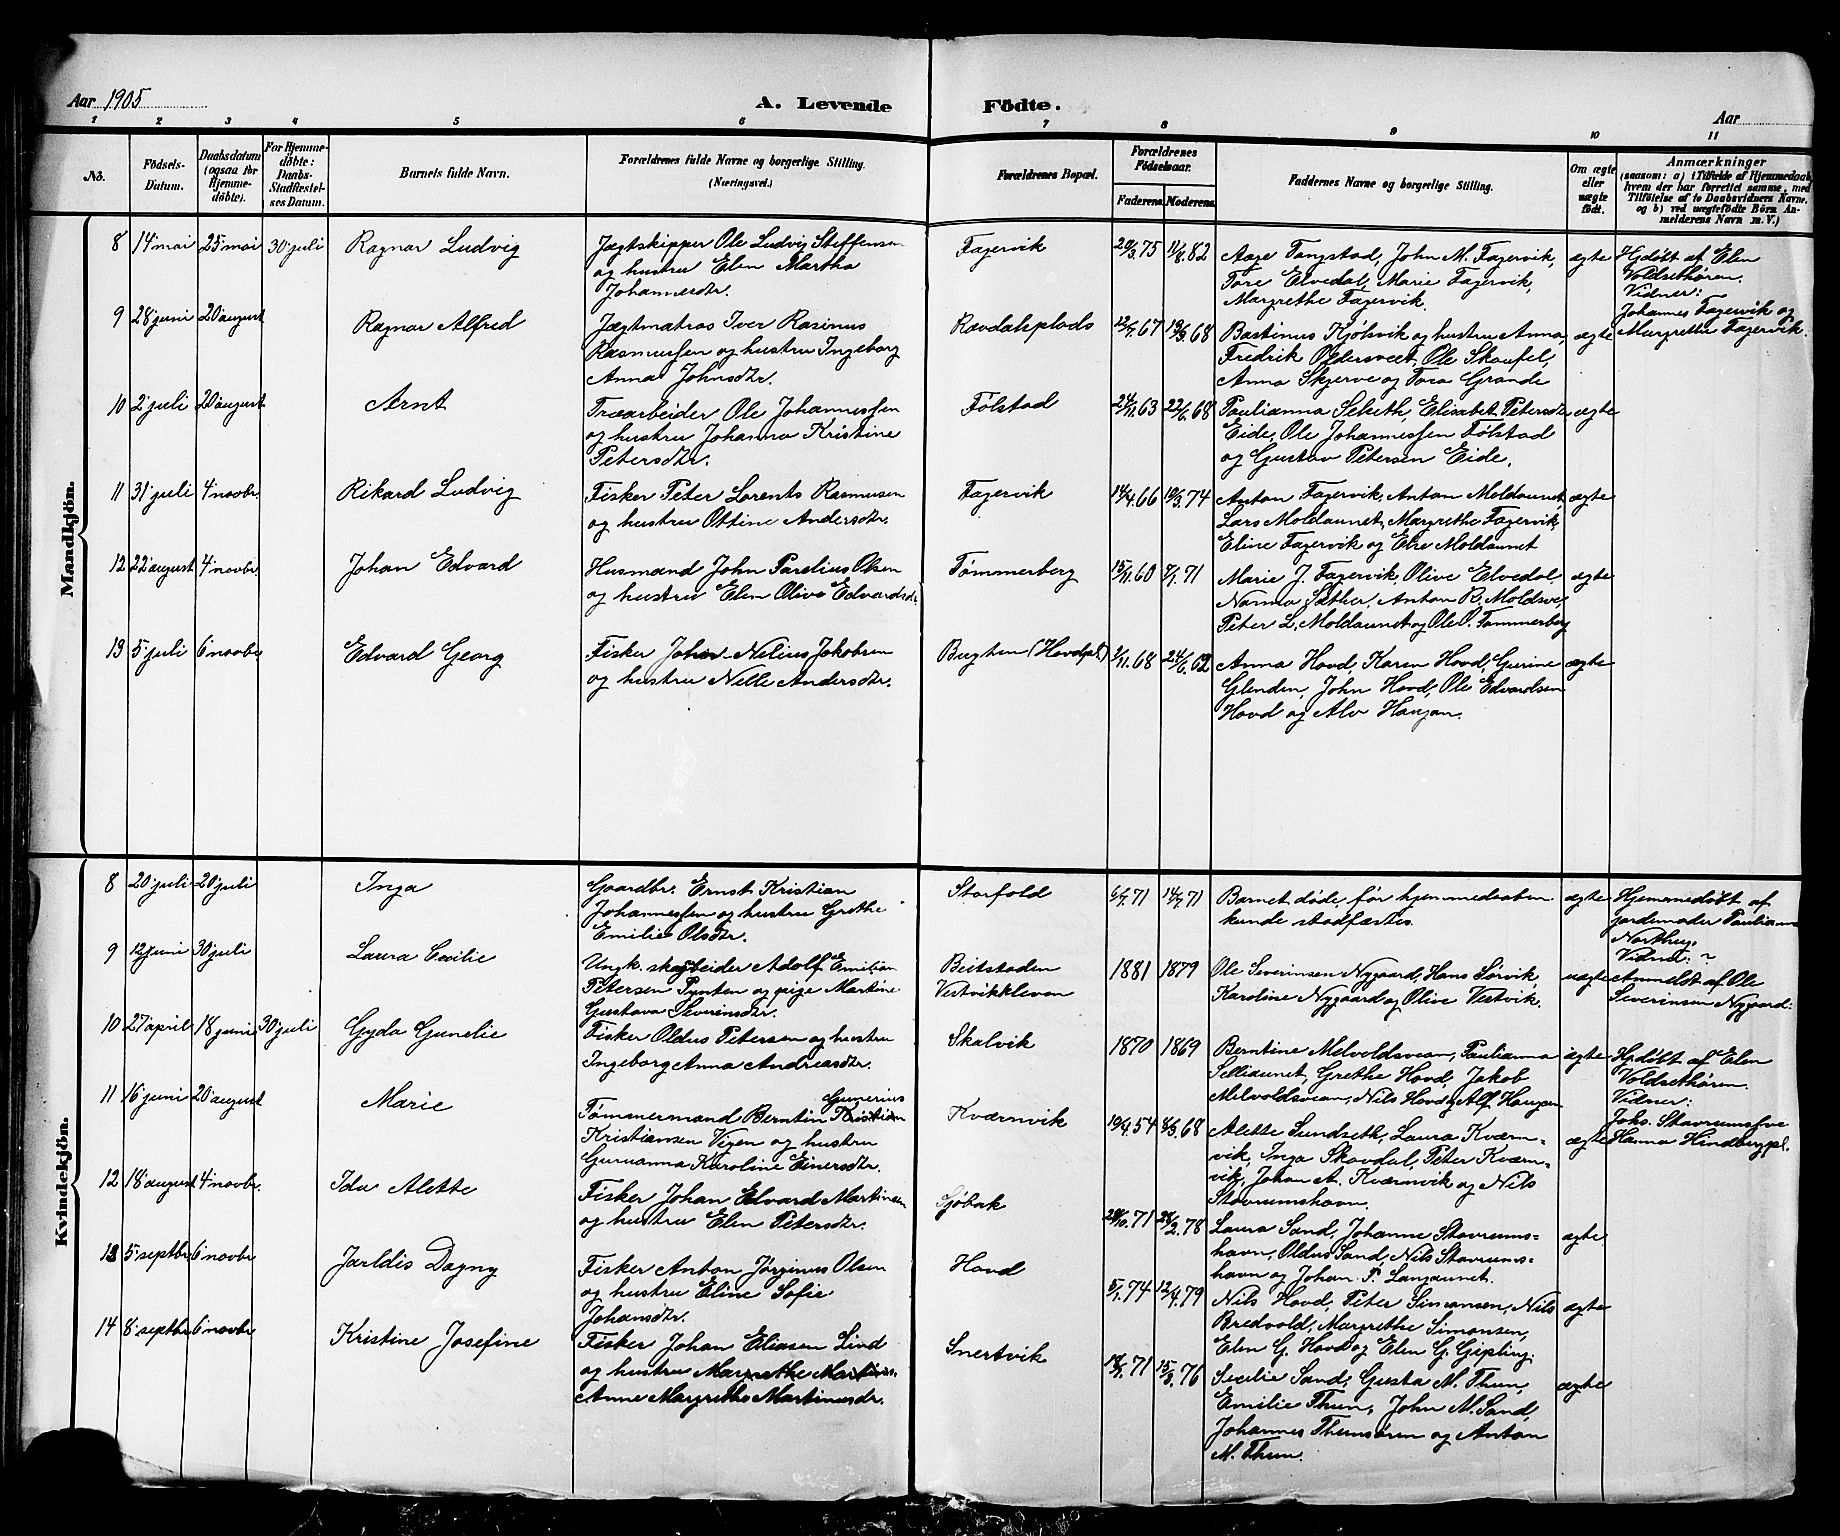 Aar 1905
A. Levende Födte.
Aar
1 2 3 4 5 6 7 8 9 10 11
No.
Födsels-
Datum.
Daabsdatum
(ogsaa for
Hjemme-
döbte).
For Hjemme-
döbte:
Daabs-
Stadfæstel-
ses Datum.
Barnets fulde Navn.
Forældrenes fulde Navne og borgerlige Stilling.
(Næringsvei.)
Forældrenes Bopæl.
Forældrenes
Födselsaar.
Faderens. Moderens.
Faddernes Navne og borgerlige Stilling.
Om ægte
eller
uægte
födt.
Anmærkninger
(saasom: a) i Tilfælde af Hjemmedaab,
hvem der har forrettet samme, med
Tilföielse af to Daabsvidners Navne,
og b) ved uægtefödte Börn An-
melderens Navn m. V.)
Mandkjön.
8 14 mai 25 mai 30 juli Ragnar Ludvig
Jægtskipper Ole Ludvig Steffensen
og hustru Elen Martha
Johannesdtr.
Fagervik
20/3.75 11/8.82
Aage Tangstad, John M. Fagervik,
Tore Elvedal, Marie Fagervik,
Margrethe Fagervik.
ægte
Hjdöbt af Elen
Voldsethøren.
Vidner:
Johannes Fagervik og
Margrethe Fagervik.
9 28 juni 20 august Ragnar Alfred
Jægtmatros Iver Rasinus
Rasmussen og hustru Ingeborg
Anna Johnsdtr.
Ravdalsplads
12/7.67 19/3.68
Bastinus Kjølsvik og hustru Anna,
Fredrik Oldersveet, Ole Skaufel,
Anna Skjerve og Tora Grande
ægte
10 2 juli 20 august Arnt
Træarbeider Ole Johannessen
og hustru Johanna Kristine
Petersdtr.
Følstad
24/11.63 22/6.68
Paulianna Selseth, Elisabet Petersdtr
Eide, Ole Johannessen Følstad
og Gustav Petersen Eide.
ægte
11 31 juli 4 novbr. Rikard Ludvig
Fisker Peter Lorents Rasmusen
og hustru Ottine Andersdtr.
Fagervik
14/4.66 10/3.74
Anton Fagervik, Anton Moldaunet,
Lars Moldaunet, Margrethe Fagervik
Eline Fagervik og Else Moldaunet
ægte
12 22 august 4 novbr. Johan Edvard
Husmand John Parelius Olsen
og hustru Elen Olive Edvardsdtr.
Tømmerberg
15/11.60 7/1.71
Marie J. Fagervik, Olive Elvedal,
Nanna Sæther, Anton R. Moldsve,
Peter L. Moldaunet og Ole O. Tømmerberg
ægte
13 5 juli 6 novbr. Edvard Georg
Fisker Johan Nelius Jakobsen
og hustru Nelle Andersdtr.
Bugten (Hovdpl.)
2/11.68 24/6.62
Anna Hovd, Karen Hovd, Gurine
Glenden, John Hovd, Ole Edvardsen
Hovd og Alv Haugan.
ægte
Kvindekjön.
8 20 juli 20 juli Inga
Gaardbr. Ernst Kristian
Johannessen og hustru Grethe
Emilie Olsdtr.
Storfold
6/7.71 14/7.71
Barnet døde, før hjemmedaaben
kunde stadfæstes.
ægte
Hjemmedöbt af
jordemoder Paulianna
Northug.
Vidner: ~
9 12 juni 30 juli Laura Cecilie
Ungk. skoarbeider Adolf Emilian
Petersen Tynten og pige Martine
Gustava Severinsdtr.
Beitstaden
Vestvikkleven
1881 1879
Ole Severinsen Nygaard, Hans Sørvik,
Karoline Nygaard og Olive Vestvik.
uægte
Anmeldt af Ole
Severinsen Nygaard.
10 27 april 18 juni 30 juli Gyda Gunelie
Fisker Oldus Petersen og hustru
Ingeborg Anna Andreasdtr.
Skalvik
1870 1869
Berntine Melvoldsvean, Paulianna
Selliaunet, Grethe Hovd, Jakob
Melvoldsvean, Nils Hovd og Alf Haugan
ægte
Hjdöbt af Elen
Voldsethøren.
Vidner:
Johs. Stavrumsfve
Hanna Hindbergpl.
11 16 juni 20 august Marie
Gunerius
Tømmermand Berntin Kristian
Kristiansen Vigen og hustru
Gurianna Karoline Einersdtr.
Kværnvik
19/4.54 8/3.68
Alette Sundseth, Laura Kværn-
vik, Inga Skavdal, Peter Kværn-
vik, Johan A. Kværnvik og Nils
Stavrumshavn.
ægte
12 18 august 4 novbr. Ida Alette
Fisker Johan Edvard Martinsen
og hustru Elen Petersdtr.
Sjøbak
28/10.71 28/2.78
Laura Sand, Johanne Stavrums-
havn, Oldus Sand, Nils Stavrums-
havn og Johan P. Langaunet.
ægte
13 5 septbr 6 novbr Jarldis Dagny
Fisker Anton Jørginus Olsen
og hustru Eline Sofie
Johansdtr.
Hovd
5/1.74 12/4.79
Nils Hovd, Peter Simonsen, Nils
Bredvold, Margrethe Simonsen,
Elen G. Hovd og Elen G. Gipling.
ægte
14 8 septbr 6 novbr Kristine Josefine
Fisker Johan Eliasen Lind
og hustru Margrethe Martinus.
Anne Margrethe Martinusdr.
Snertvik
18/7.71 15/8.76
Secilie Sand, Gusta M. Thun,
Emilie Thun, John M. Sand,
Johannes Thunsøren og Anton
M. Thun.
ægte